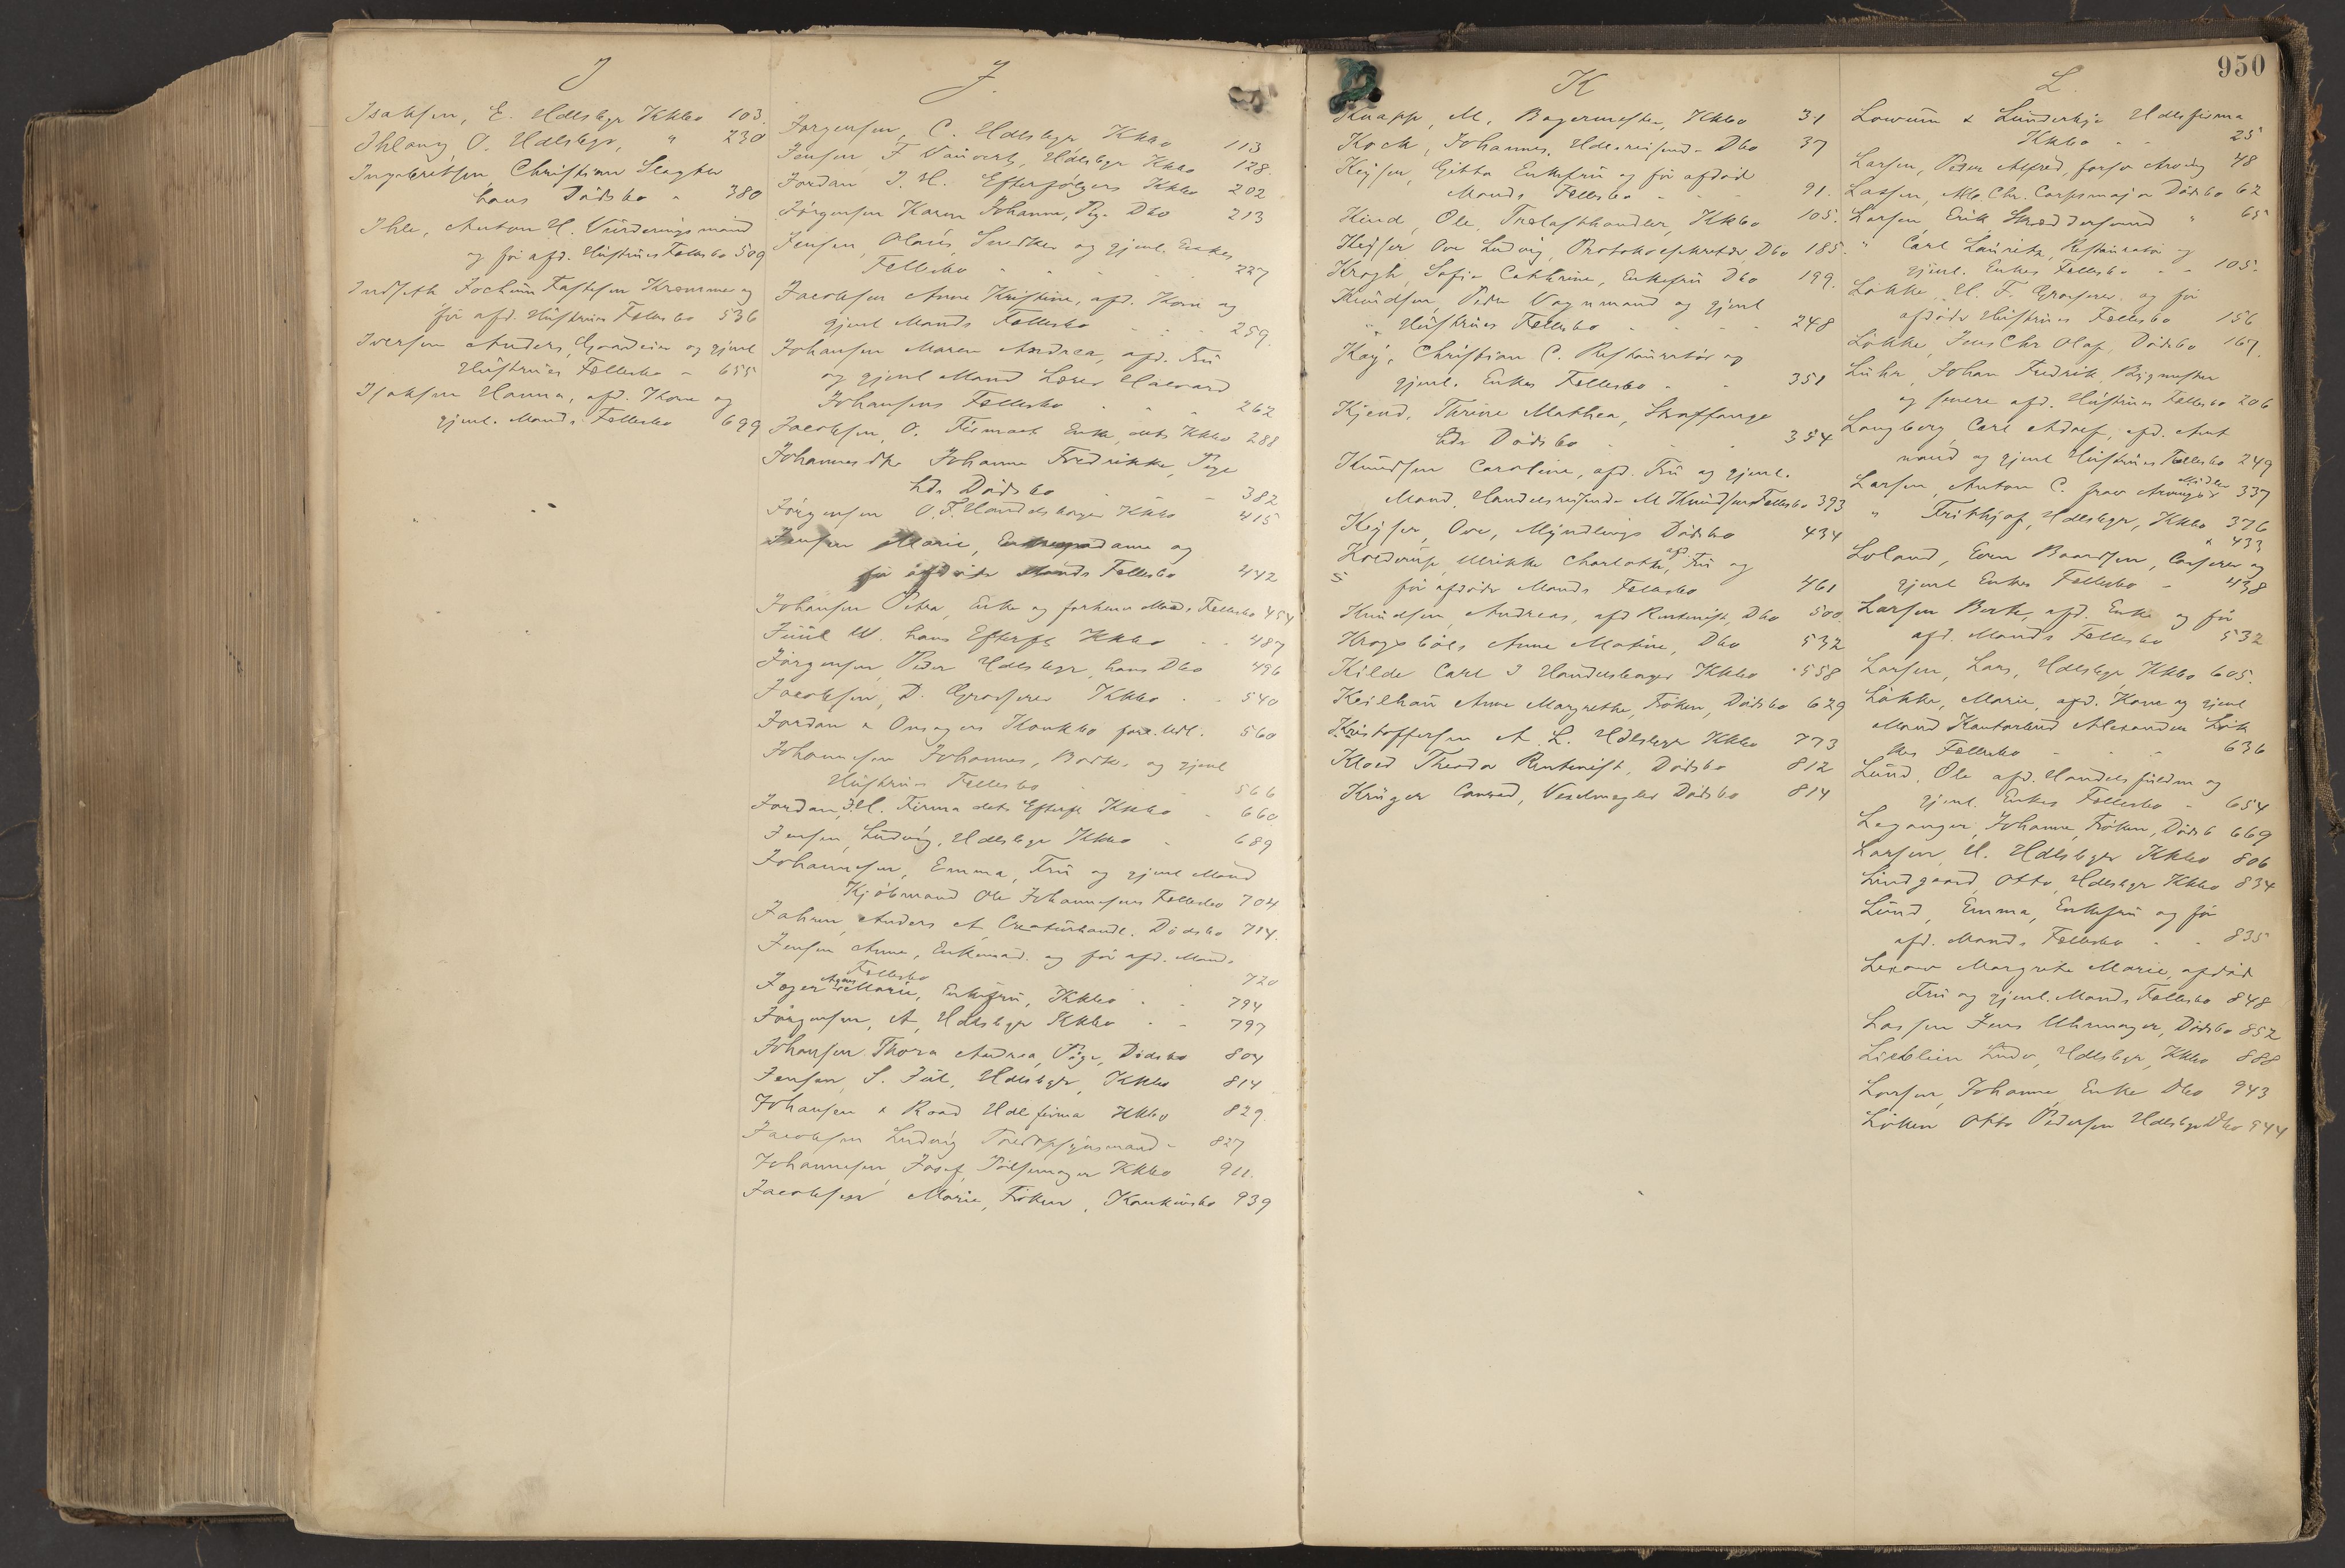 I
Isaksen, E. Hdlsbgr Kkbo 103.
Ihlang O. Hdlsbgr, " 230
Ingebretsen Christian Slagter
hans Dödsbo " 380
Ihle, Anton H. Vurderingsmand
og før afd. Hustrues Fællesbo 509
Indseth Jochum Kræmmer og
før afd. Hustrues Fællesbo 536
Iversen Anders, Gaardeier og gjenl
Hustrues Fællesbo - 655
Isaksen Hanna, afd. Kone og
gjenl. Mands Fællesbo 699
J.
Jørgensen, C. Hdlsbgr Kkbo 113
Jensen, F. Hdlsbgr Kkbo 128.
Jordan J. H. Efterfølgers Kkbo 202
Jørgensen Karen Johanne, Pige Dbo 213
Jensen, Olaus, Snedker og gjenl. Enkes
Fællesbo 227
Jacobsen Anne Kristine, afd. Kone og
gjenl Mands Fællesbo 259.
Johansen Maren Andrea, afd. Fru
og gjenl Mand Lærer Halvard
Johansens Fællesbo 262
Jacobsen, O. Firmaet Enke, dets Kkbo 288
Johannesdtr Johanne Fredrikke, Pige
hds Dödsbo - 382
Jørgensen O. F. Handelsborger Kkbo 415
Jensen Marie, Enkemadame og
før afdøde Mands Fællesbo 442
Johansen Petra, Enke og forhenv Mands Fællesbo 454
Juul W. hans Efterfl Kkbo 487
Jørgensen Peder Hdlsbgr, hans Dbo 496
Jacobsen, D. Grosserer Kkbo 540
Jordan & Onsagers Konkbo 560
Johannesen Johannes, og gjenl
Hustrues Fællesbo 566
Jordan, J. H. Firma dets Efterfl Kkbo 660
Jensen, Ludvig, Hdlsbgr Kkbo 689
Johannesen, Emma, Fru og gjenl Mand
Kjøbmand Ole Johannesens Fællesbo 704
Jahren, Anders A, Creaturhandl. Dödsbo 714.
Jensen Anne, Enkemad. og før afd. Mands
Fællesbo 720
Jeger Agnes Marie, Enkefru, Kkbo 794
Jørgensen, A, Hdlsbgr Kkbo 797
Johansen Thora Andrea, Pige, Dödsbo 804
Jensen, S. Juul, Hdlsbgr, Kkbo 814
Johansen & Road Hdlsfirma Kkbo 829.
Jacobsen Ludvig 827
Johannesen Josef, Pølsemager Kkbo 911.
Jacobsen Marie, Frøken, Konkursbo 939
K
Knapp, M. Bagermester, Kkbo 31
Koch, Johannes, Handelsreisende Dbo 37
Keyser, Gitta Enkefru og før afdøde
Mands Fællesbo 91.
Kind, Ole, Trælasthandler, Kkbo 105.
Keyser Ove Ludvig, Protokolsekretær, Dbo 185.
Krogh, Sofie Cathrine, Enkefru Dbo 199.
Knudsen, Peder Vognmand og gjenl
Hustrues Fællesbo 248
Kay, Christian C. Restauratør og
gjenl. Enkes Fællesbo 351
Kjend, Thrine Mathea, Straffange
hds Dödsbo 354
Knudsen Caroline, afd. Fru og gjenl.
Mand, Handelsreisende M Knudsens Fællesbo 393
Keyser, Ove, Myndlings Dödsbo 434
Kolderup, Ulrikke Charlotte, afd Fru og
før afdøde Mands Fællesbo 461
Knudsen, Andreas, afd Rentenist, Dbo 500.
Krogsbøl, Anne Mathine, Dbo 532
Kilde Carl I Handelsborger Kkbo 558
Keilhau Anne Margrethe, Frøken, Dödsbo 629
Kristoffersen A. L. Hdlsbgr Kkbo 773
Kloed Theodor Rentenist, Dödsbo 812
Krüger Conrad, Vexelmægler Dödsbo 814
950
L.
Lowum & Lunderbye Hdlsfirma
Kkbo 25
Larsen, Peder Alfred, 48
Lassen, Chr. Corpsmajor Dödsbo 62
Larsen Erik Skræddersvend " 65
" Carl Lauritz, Restauratør og
gjenl. Enkes Fællesbo - 105.
Løkke, H. F. Grosserer og før
afdøde Hustrues Fællesbo 156
Løkke, Jens Chr Olaf, Dödsbo 167.
Lühr, Johan Fredrik, Bygmester
og senere afd. Hustrues Fællesbo 206
Langberg, Carl Adolf, afd. Amt
mand og gjenl Hustrues Fællesbo 249
Larsen, Anton C. 337
" Frithjof, Hdlsbgr, Kkbo 376
" 433
Loland, Even Baardsen, og
gjenl Enkes Fællesbo - 438
Larsen Berte, afd. Enke og før
afd. Mands Fællesbo 532
Larsen, Lars, Hdlsbgr Kkbo 605.
Løkke, Marie, afd. Kone og gjenl
Mand Kontorbud Alexander Løk
kes Fællesbo 636
Lund, Ole afd. Handelsfuldm og
gjenl. Enkes Fællesbo - 654
Leganger, Johanne, Frøken, Dödsb 669
Larsen, H. Hdlsbgr Kkbo 806
Lindgaard, Otto, Hdlsbgr Kkbo 834
Lund, Emma, Enkefru og før
afd. Mands Fællesbo 835
Lexow Margrete Marie, afdød
Fru og gjenl. Mands Fællesbo 848
Lassen Jens Uhrmager, Dödsbo 852
Lieblein Ludv, Hdlsbgr, Kkbo 888
Larsen, Johanne, Enke Dbo 943
Løken Otto Pedersen Hdlsbgr Dbo 944